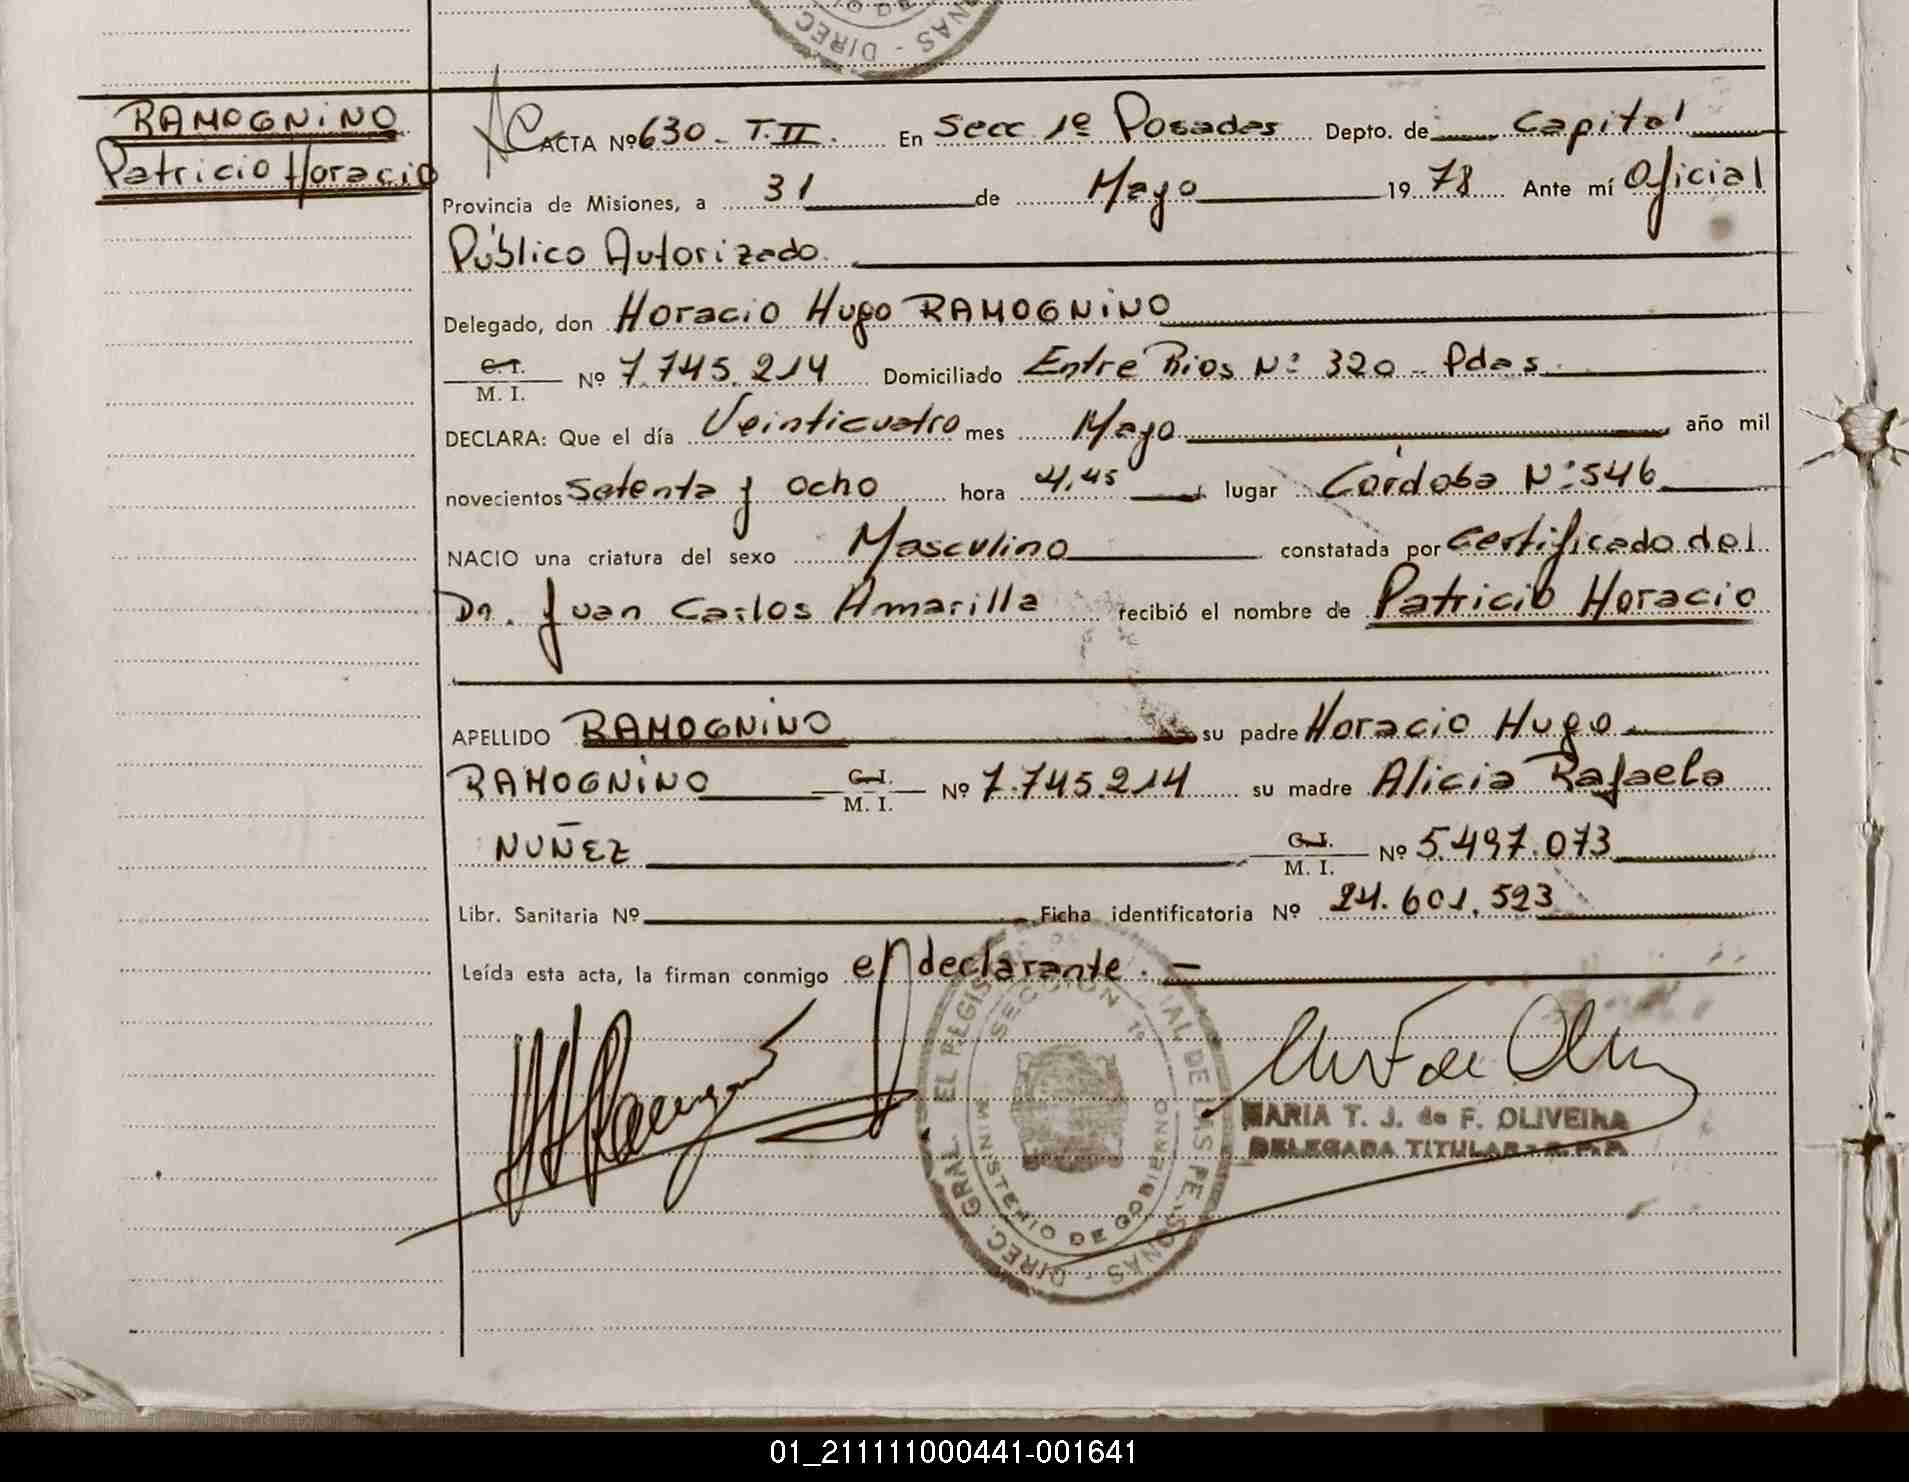 DIREC
NAS
RAMOGNINO
Patricio Horacio
ACTA Nº 630 - T. II. En Secc 1º Posadas Depto. de Capital
Provincia de Misiones, a 31 de Mayo 1978 Ante mí Oficial
Público Autorizado.
Delegado, don Horacio Hugo RAMOGNINO
C. I.
M. I. Nº 7.745.214 Domiciliado Entre Rios Nº 320 - Pdas.
DECLARA: Que el día Veinticuatro mes Mayo año mil
novecientos Setenta y ocho hora 4,45 lugar Córdoba Nº 546
NACIO una criatura del sexo Masculino constatada por Certificado del
Dr. Juan Carlos Amarilla recibió el nombre de Patricio Horacio
APELLIDO RAMOGNINO su padre Horacio Hugo
RAMOGNINO C. I. M. I. Nº 7.745.214 su madre Alicia Rafaela
NUÑEZ C. I. M. I. Nº 5.497.073
Libr. Sanitaria Nº Ficha identificatoria Nº 24.601.523
Leída esta acta, la firman conmigo el declarante. -
SECCION 1º
MINISTERIO DE GOBIERNO
MARIA T. J. de F. OLIVEIRA
DELEGADA TITULAR - R.P.P.
01_211111000441-001641